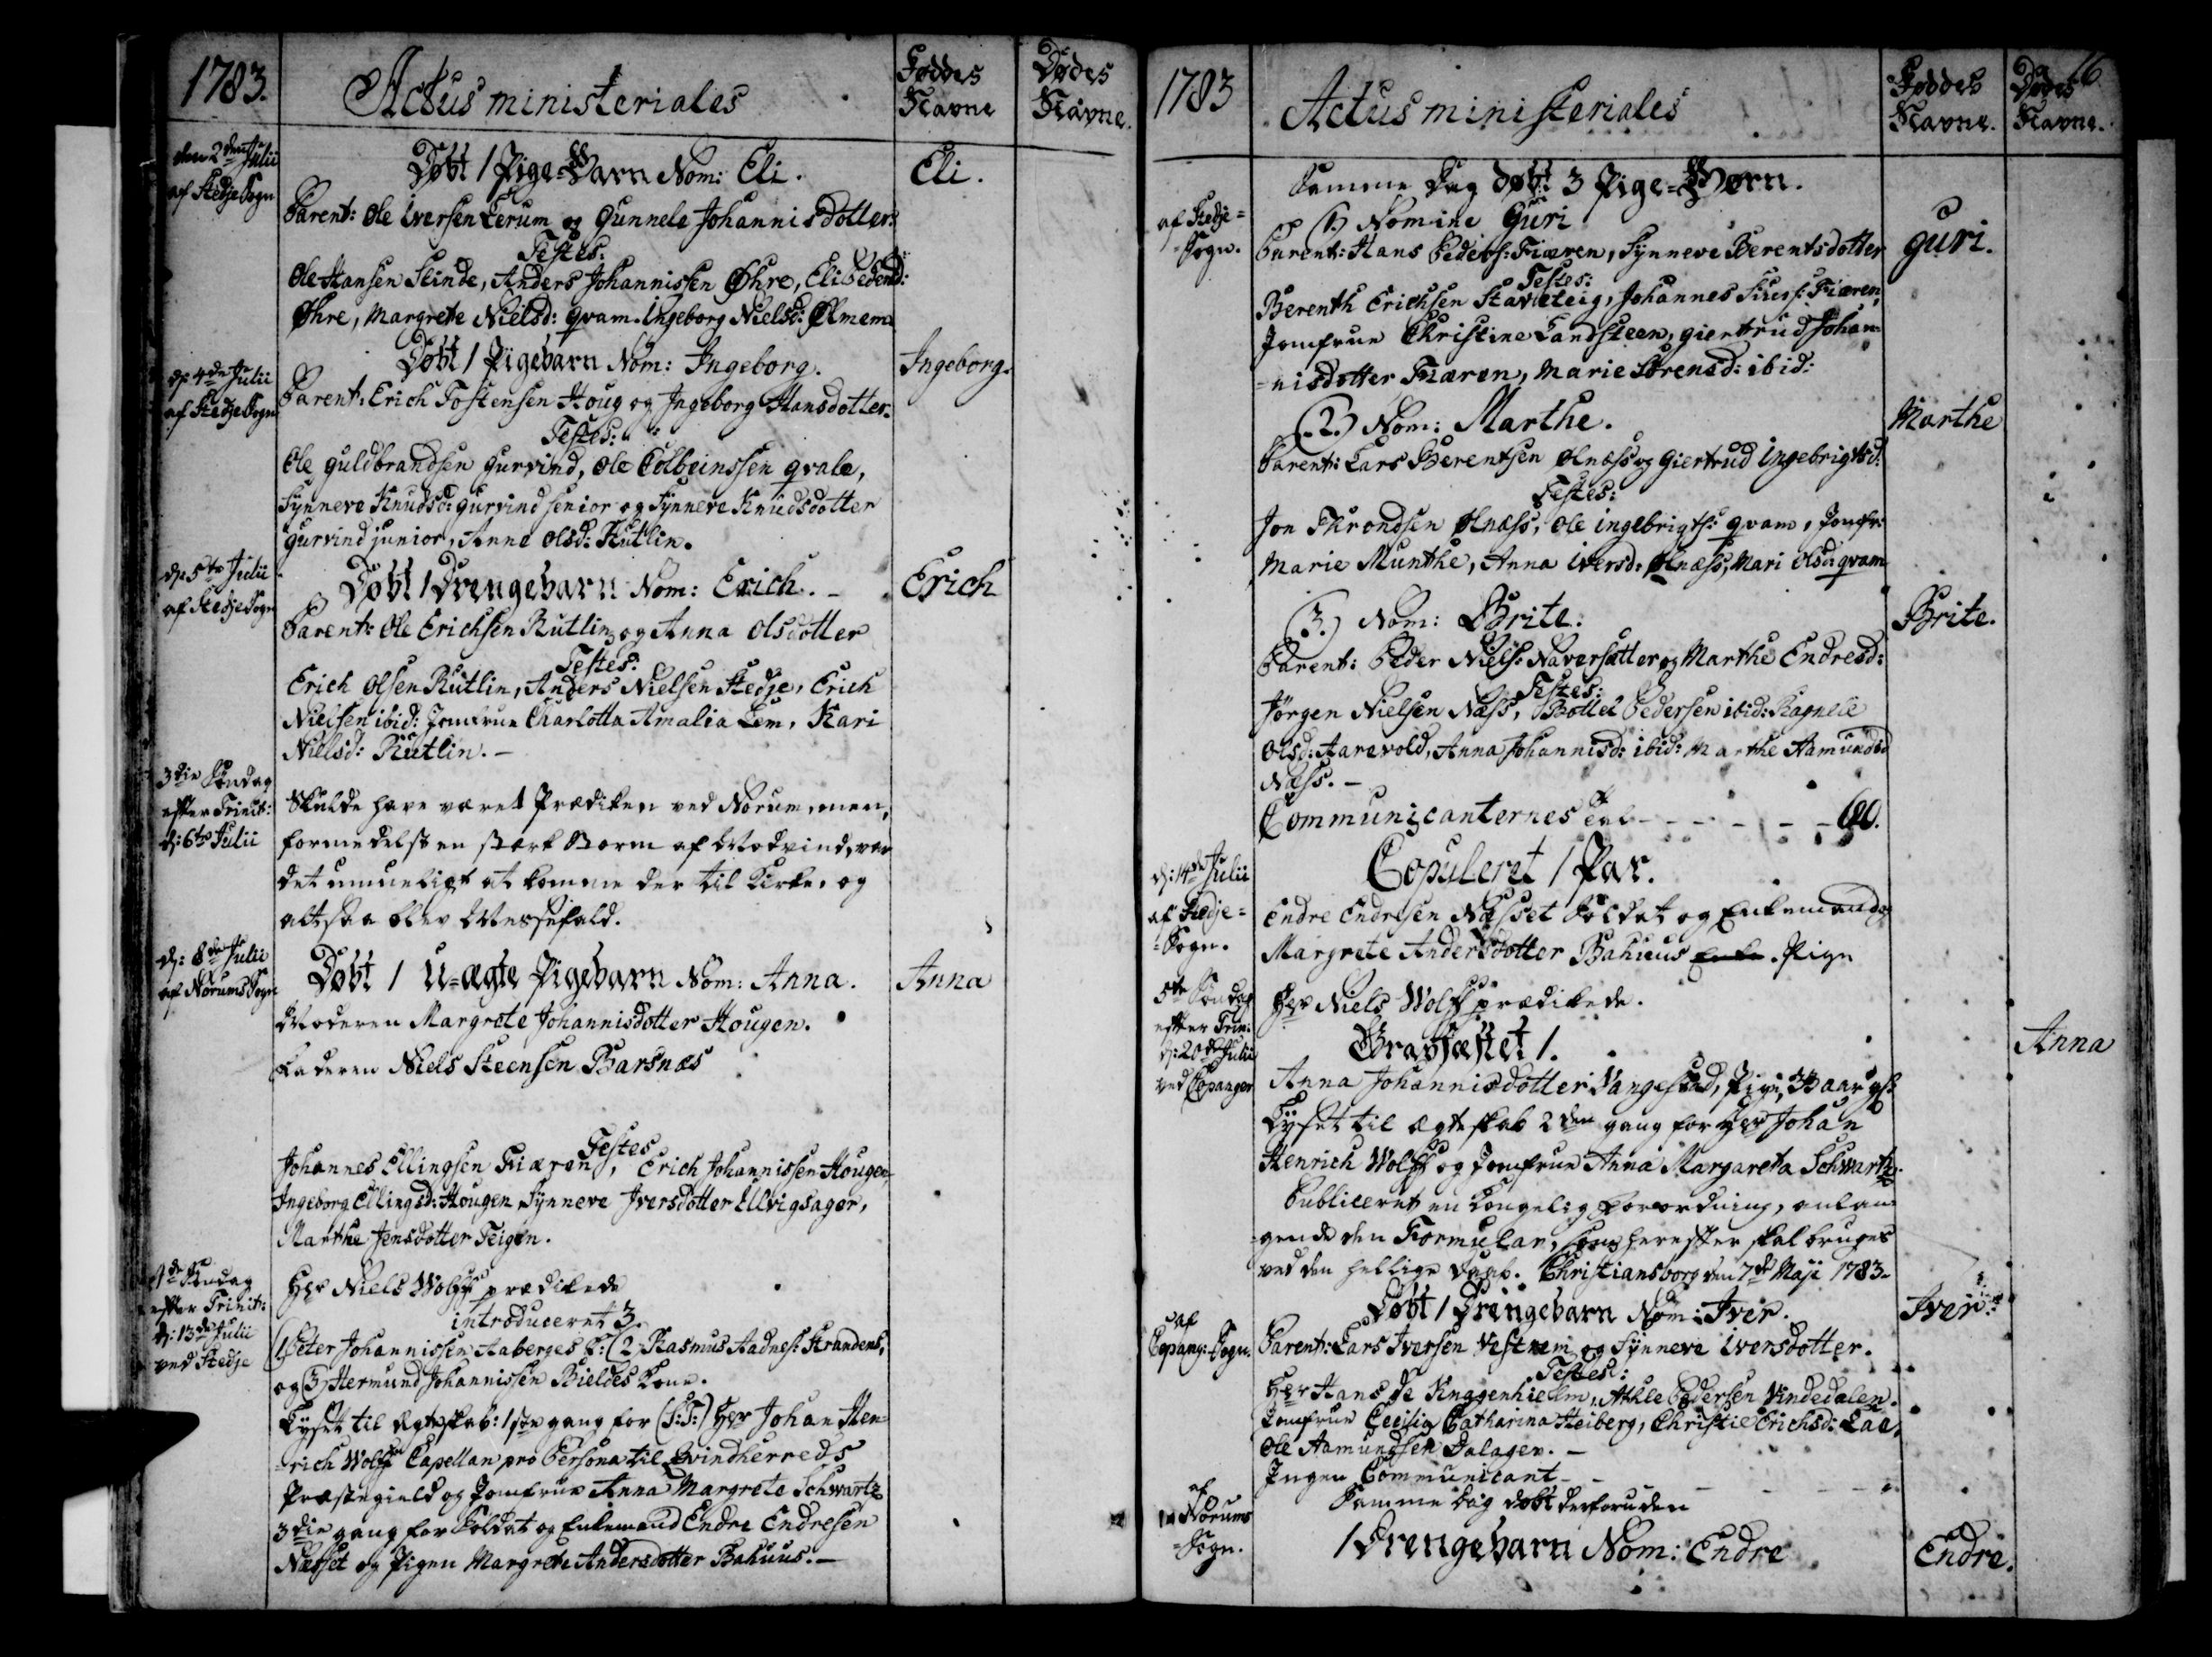 1783.
Actus ministeriales
Føddes Navne
Dødes Navne.
den 2den Julii
af Stedje Sogn
Døbt 1 Pige-Barn Nom: Eli.
Eli.
Parent: Ole Iversen Lerum og Gunnele Johannisdotter.
Testes:
Ole Hansen Slinde, Anders Johannissen Øhre, Eli Pedersd:
Øhre, Margrete Nielsd: Qvam. Ingeborg Nielsd: Ølmem
d. 4de Julii
af Stedje Sogn
Døbt 1 Pigebarn Nom: Ingeborg.
Ingeborg.
Parent: Erich Tostensen Houg og Ingeborg Hansdotter.
Testes:
Ole Guldbrandsen Gurvind, Ole Colbeinssen Qvale,
Synneve Knudsd: Gurvind senior og Synneve Knudsdotter
Gurvind junior, Anne Olsd: Rutlin.
d. 5te Julii
af Stedje Sogn
Døbt 1 Drengebarn Nom: Erich. -
Erich
Parent: Ole Erichsen Rutlin og Anna Olsdotter
Testes:
Erich Olsen Rutlin, Anders Nielsen Stedje, Erich
Nielsen ibid: Jomfrue Charlotta Amalia Lem, Kari
Nielsd: Rutlin. -
3die Søndag
efter Trinit:
d: 6te Julii
Skulde have været Prædiken ved Norum, men,
formedelst en stærk Storm af Modvind, var
det umueligt at komme der til Kirke, og
altsaa blev Messefald.
d: 8de Julii
af Norums Sogn
Døbt 1 U-ægte Pigebarn Nom: Anna.
Anna
Moderen Margrete Johannisdotter Hougen.
Faderen Niels Steensen Barsnes
Testes
Johannes Ellingsen Fiæren, Erich Johannissen Hougen,
Ingeborg Ellingsd: Hougen, Synneve Iversdotter Ulvigsager,
Marthe Jensdotter Teigen.
4de Søndag
efter Trinit:
d: 13de Julii
ved Stedje
Hr Niels Wolff prædikede
introduceret 3.
(1 Peter Johannissen Aaberges K: (2 Rasmus Aadnes: Strandens,
og (3) Hermund Johannissen Bieldes Kone.
Lyset til Ægteskab: 1ste gang for (S: T:) Hr Johan Hen-
-rich Wolff Capellan pro Persona til Qvindherreds
Præstegield og Jomfrue Anna Margrete Schwartz
3die gang for Soldat og Enkemand Endre Endresen
Næsset og Pigen Margrete Andersdotter Bahuus. -
1783
Actus ministeriales
Føddes Navne.
Dødes Navne.
16
af Stedje-
-Sogn.
Samme Dag døbt 3 Pige-Børn.
(1.) Nomine Guri
Guri.
Parent: Hans Peders: Fiæren, Synneve Berentsdotter
Testes:
Berenth Erichsen Stavteig, Johannes Siurs: Fiæren,
Jomfrue Christine Landsteen, Giertrud Johan-
-nisdotter Fiæren, Marie Sørensd: ibid:
(2.) Nom: Marthe.
Marthe
Parent: Lars Berentsen Ølnæss og Giertrud Ingebrigtsd:
Testes:
Jon Throndsen Ølnæss, Ole Ingebrigts: Qvam, Jomfr:
Marie Munthe, Anna Iversd: Ølnæss, Mari Olsd: Qvam
(3.) Nom: Brite:
Brite.
Parent: Peder Niels: Naversætter og Marthe Endresd:
Testes:
Jørgen Nielsen Næss, Bottel Pedersen ibid: Ragnele
Olsd: Aarevold, Anna Johannisd: ibid: Marthe Aamundsd
Næss. -
Communicanternes Tal - - - - - - 60.
d: 14de Julii
af Stedje-
-Sogn.
Copuleret 1 Par.
Endre Endresen Næsset Soldat og Enkemand og
Margrete Andersdotter Bahuus Enke. Pige
5te Søndag
efter Trin:
d: 20de Julii
ved Copanger
Hr Niels Wolff prædikede.
Gravfæstet 1.
Anna
Anna Johannisdotter Vangestad, Pige, aar gl:
Lyset til Ægteskab 2den gang for Hr Johan
Henrich Wolff og Jomfrue Anna Margareta Schwartz.
Publiceret en Kongelig Forordning, anlan-
-gende den Formular, som herefter skal bruges
ved den hellige Daab. Christiansborg den 7de Maji 1783.
af
Copang: Sogn.
Døbt 1 Drengebarn Nom: Iver.
Iver.
Parent: Lars Iversen Vestrem og Synneve Iversdotter.
Testes:
Hr Hans de Knagenhielm, Athle Pedersen Vindedalen.
Jomfrue Cecilia Catharina Heiberg, Christie Erichsd: Laa,
Ole Aamundsen Dalager. -
Ingen Communicant - -
af
Norums
-Sogn.
Samme Dag døbt desforuden
1 Drengebarn Nom: Endre
Endre.